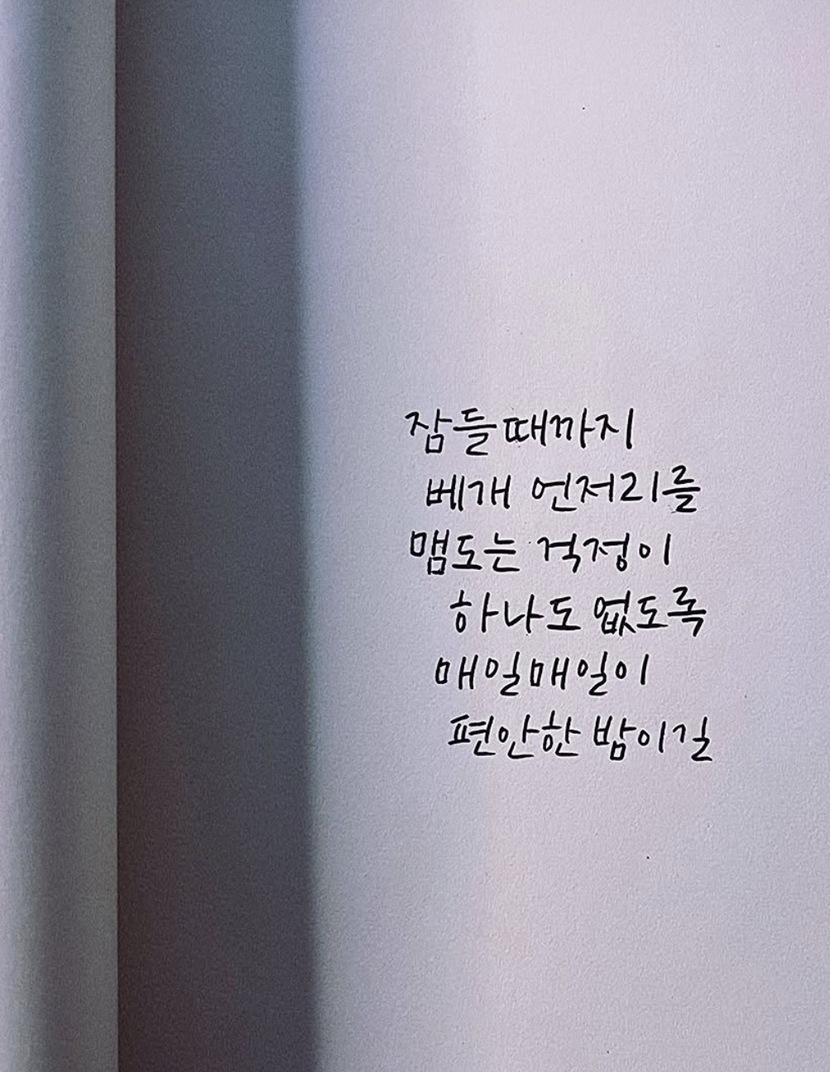 잠들 때까지
베개 언저리를
맴도는 걱정이
하나도 없도록
매일매일이
편안한 밤이길